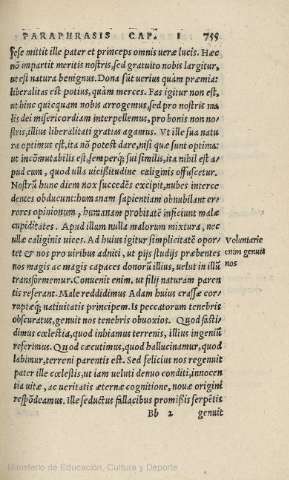 PARAPHRASIS CAP. I 755
sese mittit ille pater et princeps omnis ueræ lucis. Hæc
nō impartit meritis nostris, sed gratuito nobis largitur,
ut est natura benignus. Dona sūt uerius quàm præmia:
liberalitas est potius, quàm merces. Fas igitur non est,
ut hinc quicquam nobis arrogemus, sed pro nostris ma
lis dei misericordiam interpellemus, pro bonis non no
stris, illius liberalitati gratias agamus. Vt ille sua natu
ra optimus est, ita nō potest dare, nisi quæ sunt optima:
ut incōmutabilis est, semperq; sui similis, ita nihil est a
pud eum, quod ulla uicißitudine caliginis offuscetur.
Nostrū hunc diem nox succedēs excipit, nubes interce
dentes obducunt: humanam sapientiam obnubilant er
rores opinionum, humanam probitatē inficiunt malæ
cupiditates. Apud illam nulla malorum mixtura, nec
ullæ caliginis uices. Ad huius igitur simplicitatē opor
tet & nos pro uiribus adniti, ut pijs studijs præbentes
nos magis ac magis capaces donorū illius, uelut in illū
transformemur. Conuenit enim, ut filij naturam paren
tis referant. Male reddidimus Adam huius crassæ cor
ruptæq; natiuitatis principem. Is peccatorum tenebris
obscuratus, genuit nos tenebris obnoxios. Quod fasti-
dimus cœlestia, quod inhiamus terrenis, illius ingeniū
referimus. Quod cæcutimus, quod hallucinamur, quod
labimur, terreni parentis est. Sed felicius nos regenuit
pater ille cœlestis, ut iam ueluti denuo conditi, innocen
tia uitæ, ac ueritatis æternæ cognitione, nouæ origini
respōdeamus. Ille seductus fallacibus promißis serpētis
Voluntarie
enim genuit
nos
Bb 2 genuit
Ministerio de Educación, Cultura y Deporte